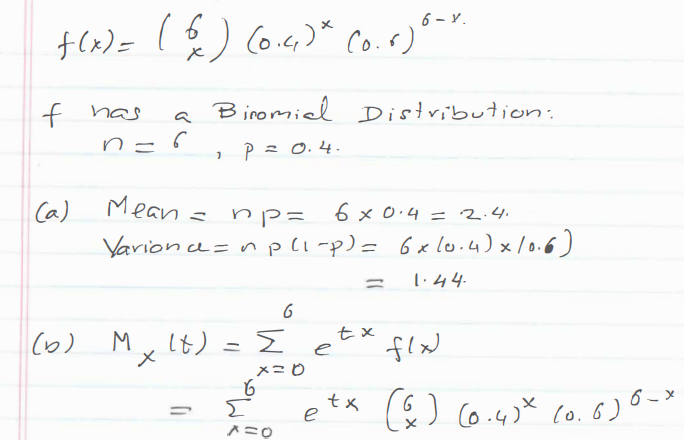 f(x) = (6 x) (0.4)^x (0.6)^6-x.
f has a Binomial Distribution:
n = 6, p = 0.4.
(a) Mean = np = 6 x 0.4 = 2.4.
Variance = np(1-p) = 6x(0.4)x(0.6)
= 1.44.
(b) M_x(t) = Σ_{x=0}^{6} e^{tx} f(x)
= Σ_{x=0}^{6} e^{tx} (6 x) (0.4)^x (0.6)^{6-x}